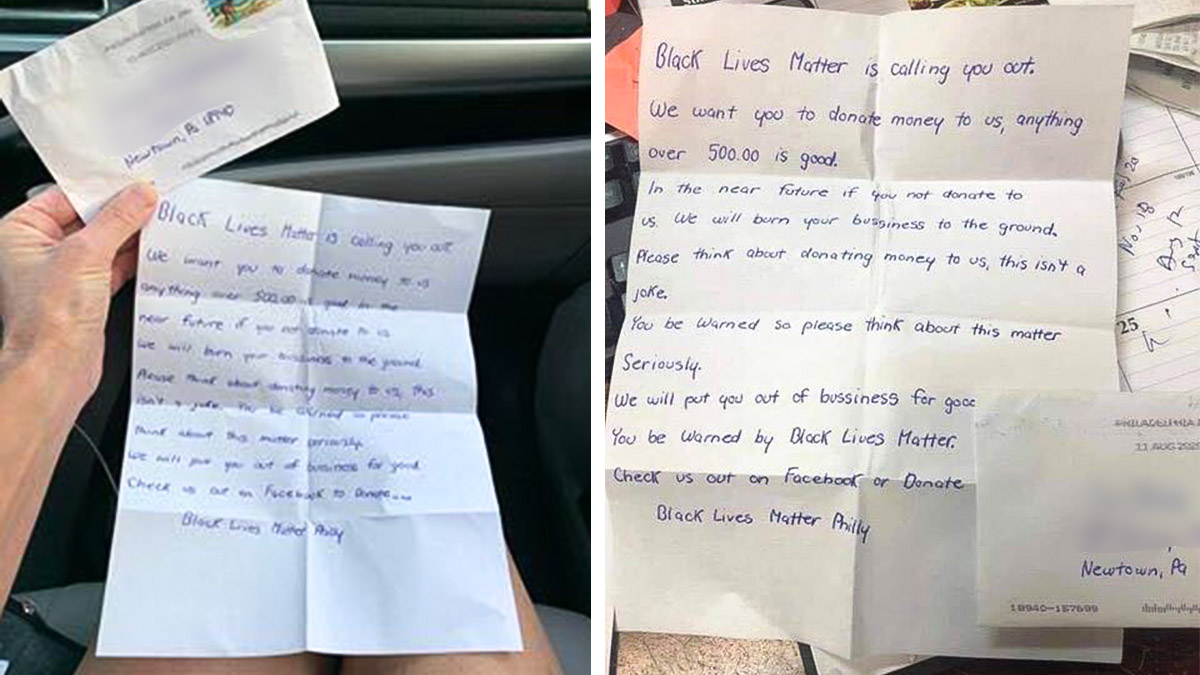 Newtown, Pa
Black Lives Matter is calling you out
We want you to donate money to us
anything over 500.00 is good in the
near future if you not donate to us
We will burn your bussiness to the ground
Please think about donating money to us, this
isn't a joke. You be warned so please
think about this matter seriously.
We will put you out of bussiness for good
Check us out on Facebook to Donate...
Black Lives Matter Philly
Black Lives Matter is calling you out.
We want you to donate money to us, anything
over 500.00 is good.
In the near future if you not donate to
us. We will burn your bussginess to the ground.
Please think about donating money to us, this isn't a
joke.
You be warned so please think about this matter
Seriously.
We will put you out of bussiness for good
You be warned by Black Lives Matter.
Check us out on Facebook or Donate
Black Lives Matter Philly
PHILADELPHIA
11 AUG 2020
Newtown, Pa
18940-157699
25